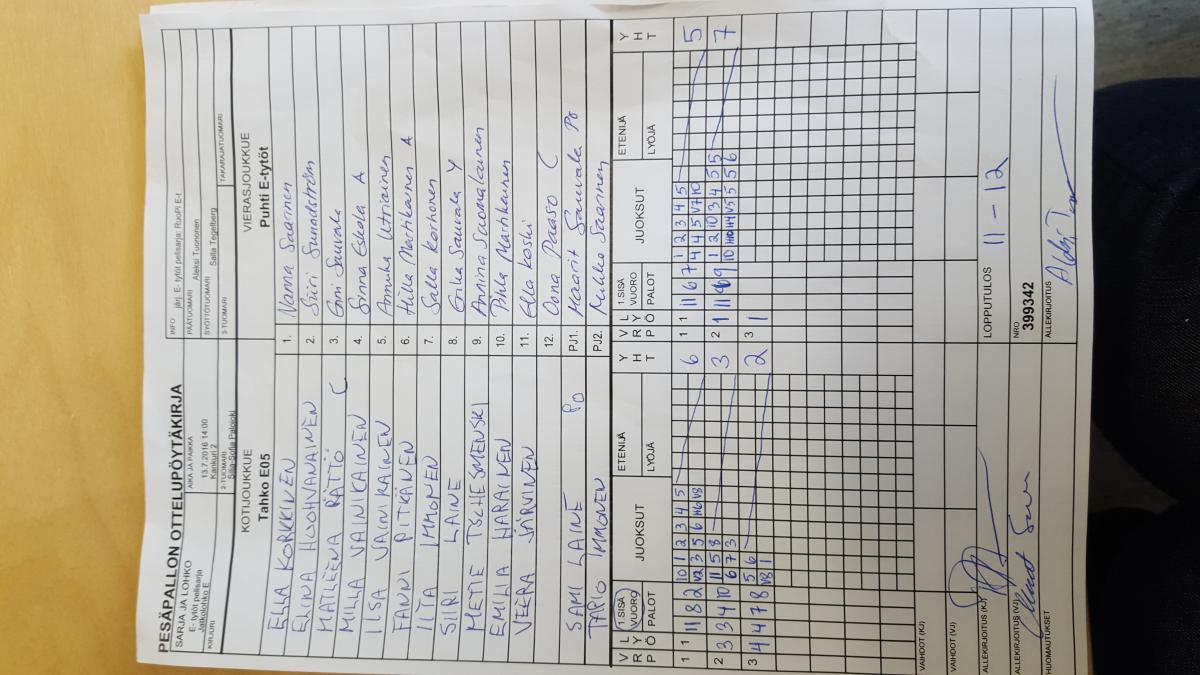 PESÄPALLON OTTELUPÖYTÄKIRJA
SARJA JA LOHKO
E- tytöt pelisarja
Jatkolohko E
AIKA JA PAIKKA
13.7.2016 14:00
Kankuri 2
INFO järj. E- tytöt pelisarja; RuoPi E-t
PÄÄTUOMARI Aleksi Tuononen
SYÖTTÖTUOMARI Salla Tegelberg
KIRJURI
2-TUOMARI
Silja-Sofia Palojoki
3-TUOMARI
TAKARAJATUOMARI
KOTIJOUKKUE
Tahko E05
VIERASJOUKKUE
Puhti E-tytöt
ELLA KORKKINEN 1. Nanna Saarinen
ELINA HUOHVANAINEN 2. Siiri Sundström
MATLEENA RÄTTÖ C 3. Enni Sauvala
MILLA VAINIKAINEN 4. Sinna Eskola A
ILSA VAINIKAINEN 5. Annika Utriainen
FANNI PITKÄNEN 6. Hilla Martikainen A
IITA IMMONEN 7. Salla Korhonen
SIIRI LAINE 8. Erika Sauvala Y
METTE TSCHESMENSKI 9. Anniina Suomalainen
EMILIA HARAINEN 10. Pihla Martikainen
VEERA JÄRVINEN 11. Ella Koski
12. Oona Paaso C
SAMI LAINE PO PJ1. Maarit Sauvala Po
TAPIO IMMONEN PJ2. Mikko Saarinen
V R P L Y Ö 1.SISÄ VUORO PALOT JUOKSUT ETENIJÄ LYÖJÄ Y H T V R P L Y Ö 1.SISÄ VUORO PALOT JUOKSUT ETENIJÄ LYÖJÄ Y H T
1 1 11 8 2 10 1 2 3 4 5 6 1 1 11 6 7 1 2 3 4 5 5
V2 3 5 6 H6 V8 4 4 5 V7 10
2 3 3 4 10 11 5 8 3 2 1 11 1 2 10 3 4 5 5 7
6 7 3
3 4 4 7 8 5 6 2 3 1
V8 1
VAIHDOT (KJ)
VAIHDOT (VJ)
ALLEKIRJOITUS (KJ)
LOPPUTULOS 11 - 12
ALLEKIRJOITUS (VJ)
NRO
399342
HUOMAUTUKSET
ALLEKIRJOITUS